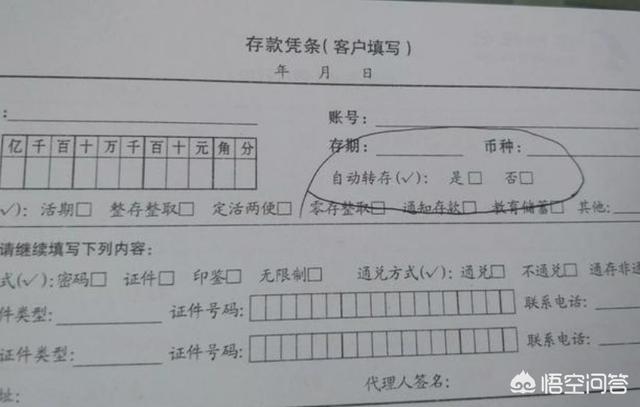 存款凭条(客户填写)
年 月 日
: 账号:
亿千百十万千百十元角分 存期: 币种:
自动转存(√): 是□ 否□
√): 活期□ 整存整取□ 定活两便□ 零存整取□ 通知存款□ 教育储蓄□ 其他:
请继续填写下列内容:
式(√): 密码□ 证件□ 印签□ 无限制□ 通兑方式(√): 通兑□ 不通兑□ 通存非通
件类型: 证件号码: 联系电话:
证件类型: 证件号码: 联系电话:
址: 代理人签名:
悟空问答